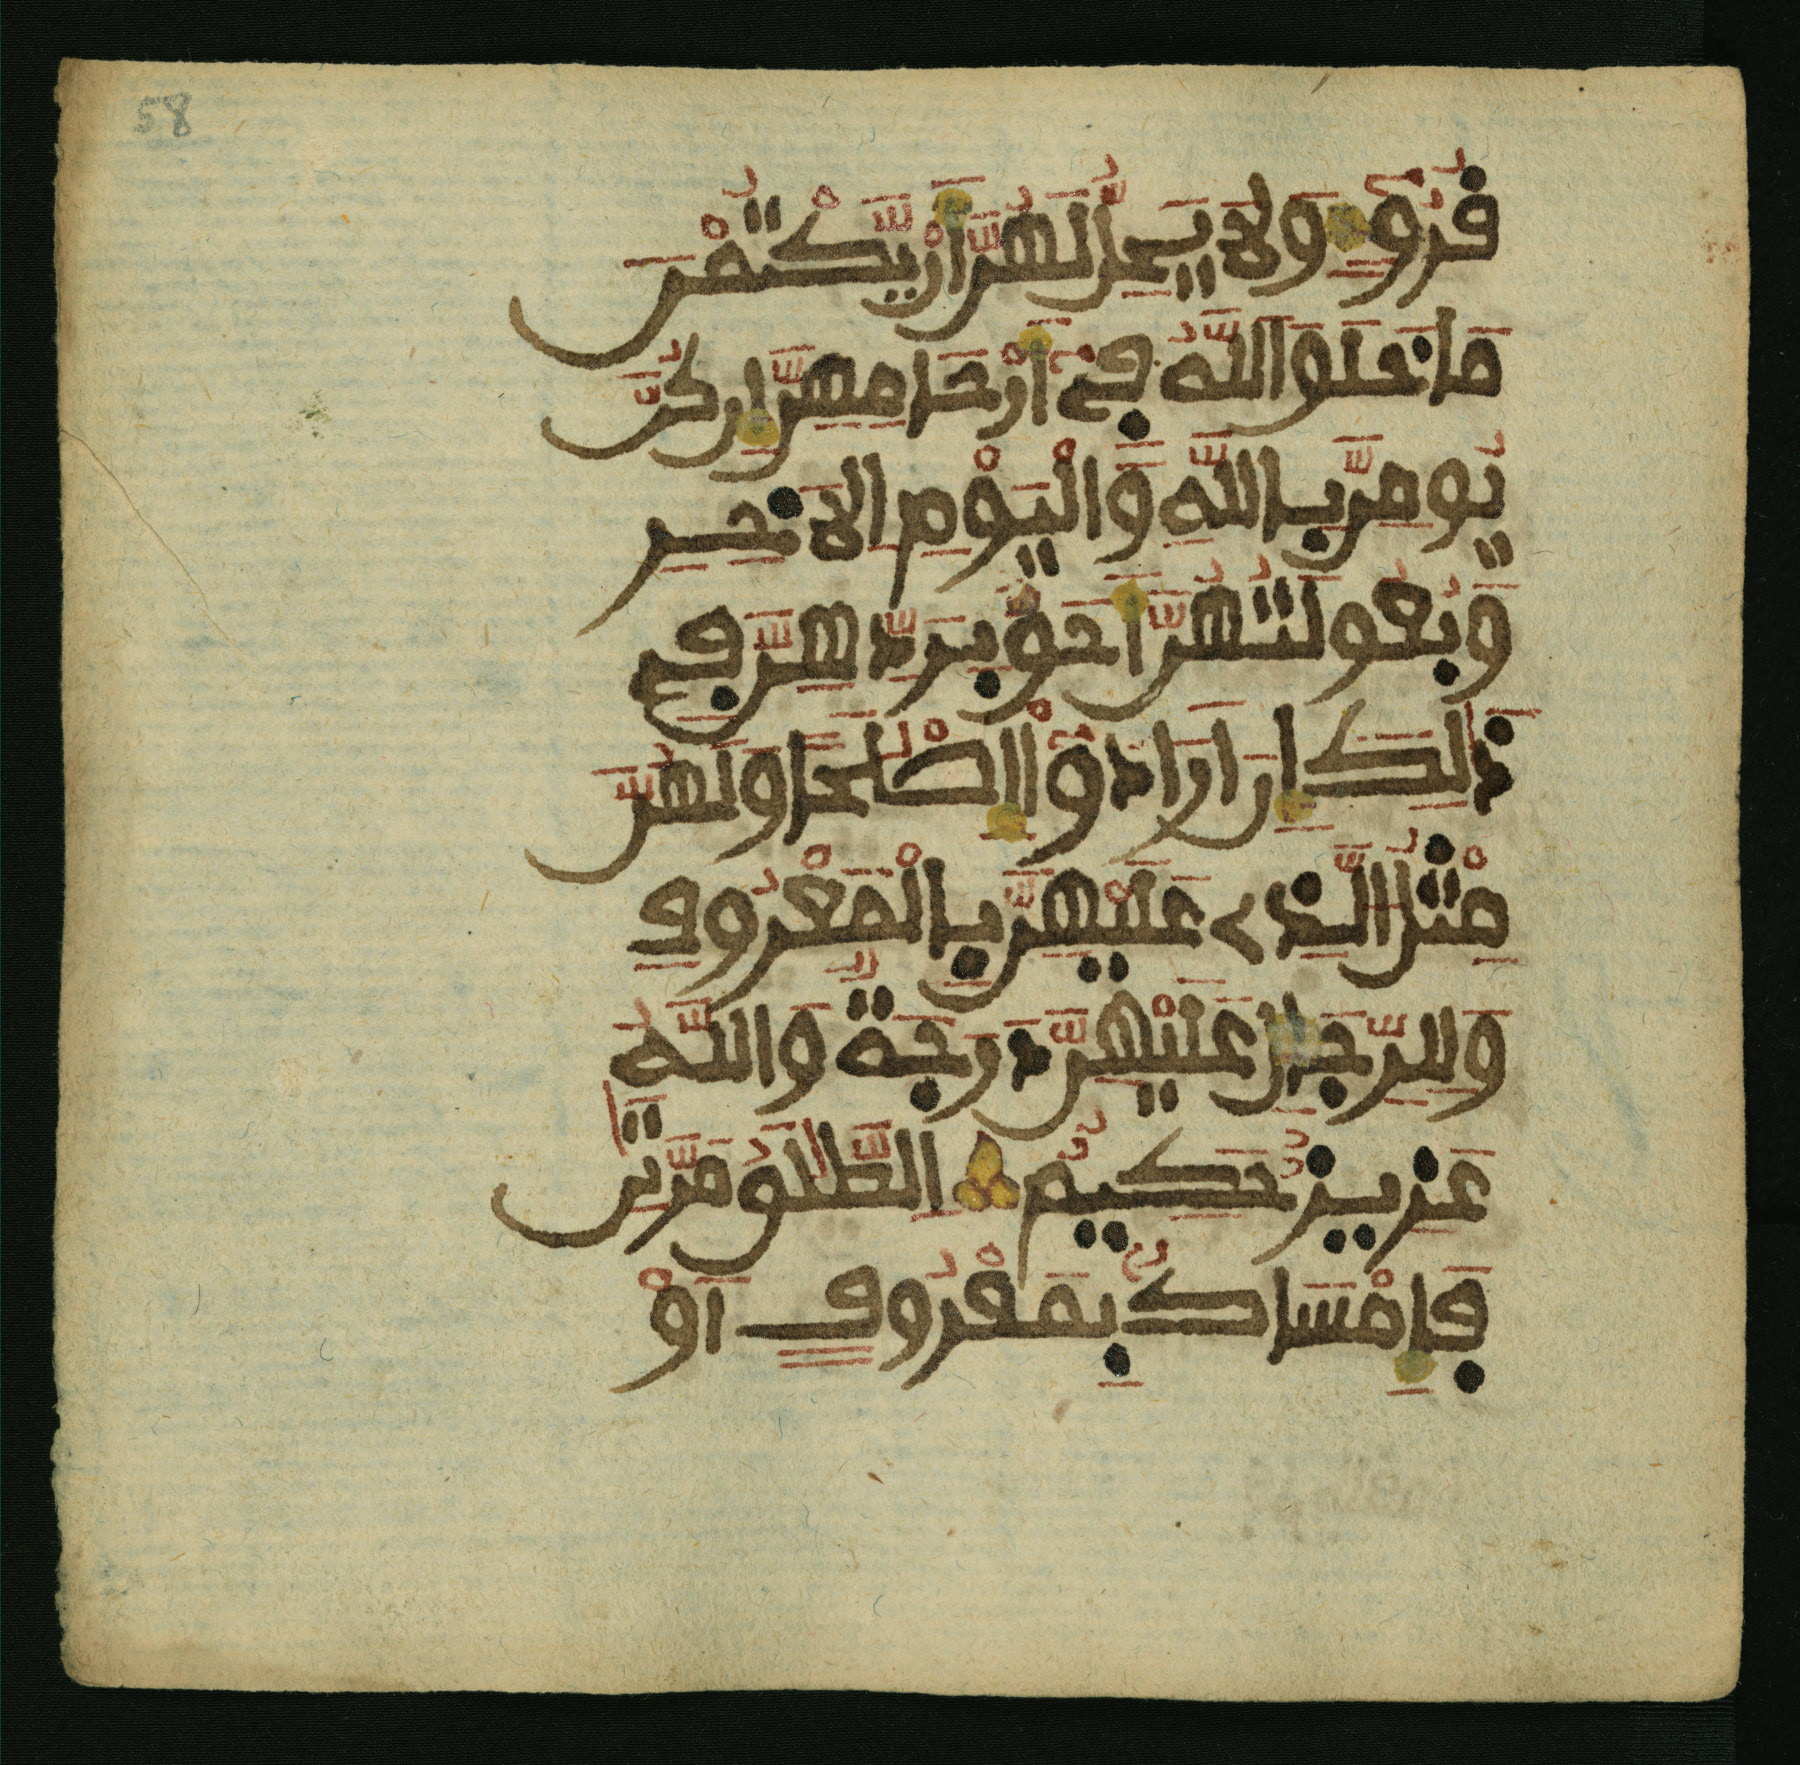 58
قُرُوٓءٍ وَلَا يَحِلُّ لَهُنَّ أَنْ يَّكْتُمْنَ
مَا خَلَقَ اللَّهُ فِےٓ أَرْحَامِهِنَّ إِن كُنَّ
يُومِنَّ بِاللَّهِ وَالْيَوْمِ الَاخِرِ
وَبُعُولَتُهُنَّ أَحَقُّ بِرَدِّهِنَّ فِے
ذَٰلِكَ إِنَ ارَادُوٓاْ إِصْلَٰحاً وَلَهُنَّ
مِثْلُ الَّذِے عَلَيْهِنَّ بِالْمَعْرُوفِ
وَلِلرِّجَالِ عَلَيْهِنَّ دَرَجَةٌ وَاللَّهُ
عَزِيزٌ حَكِيمٌ الطَّلَٰقُ مَرَّتَٰنِ
فَإِمْسَاكٌ بِمَعْرُوفٍ أَوْ